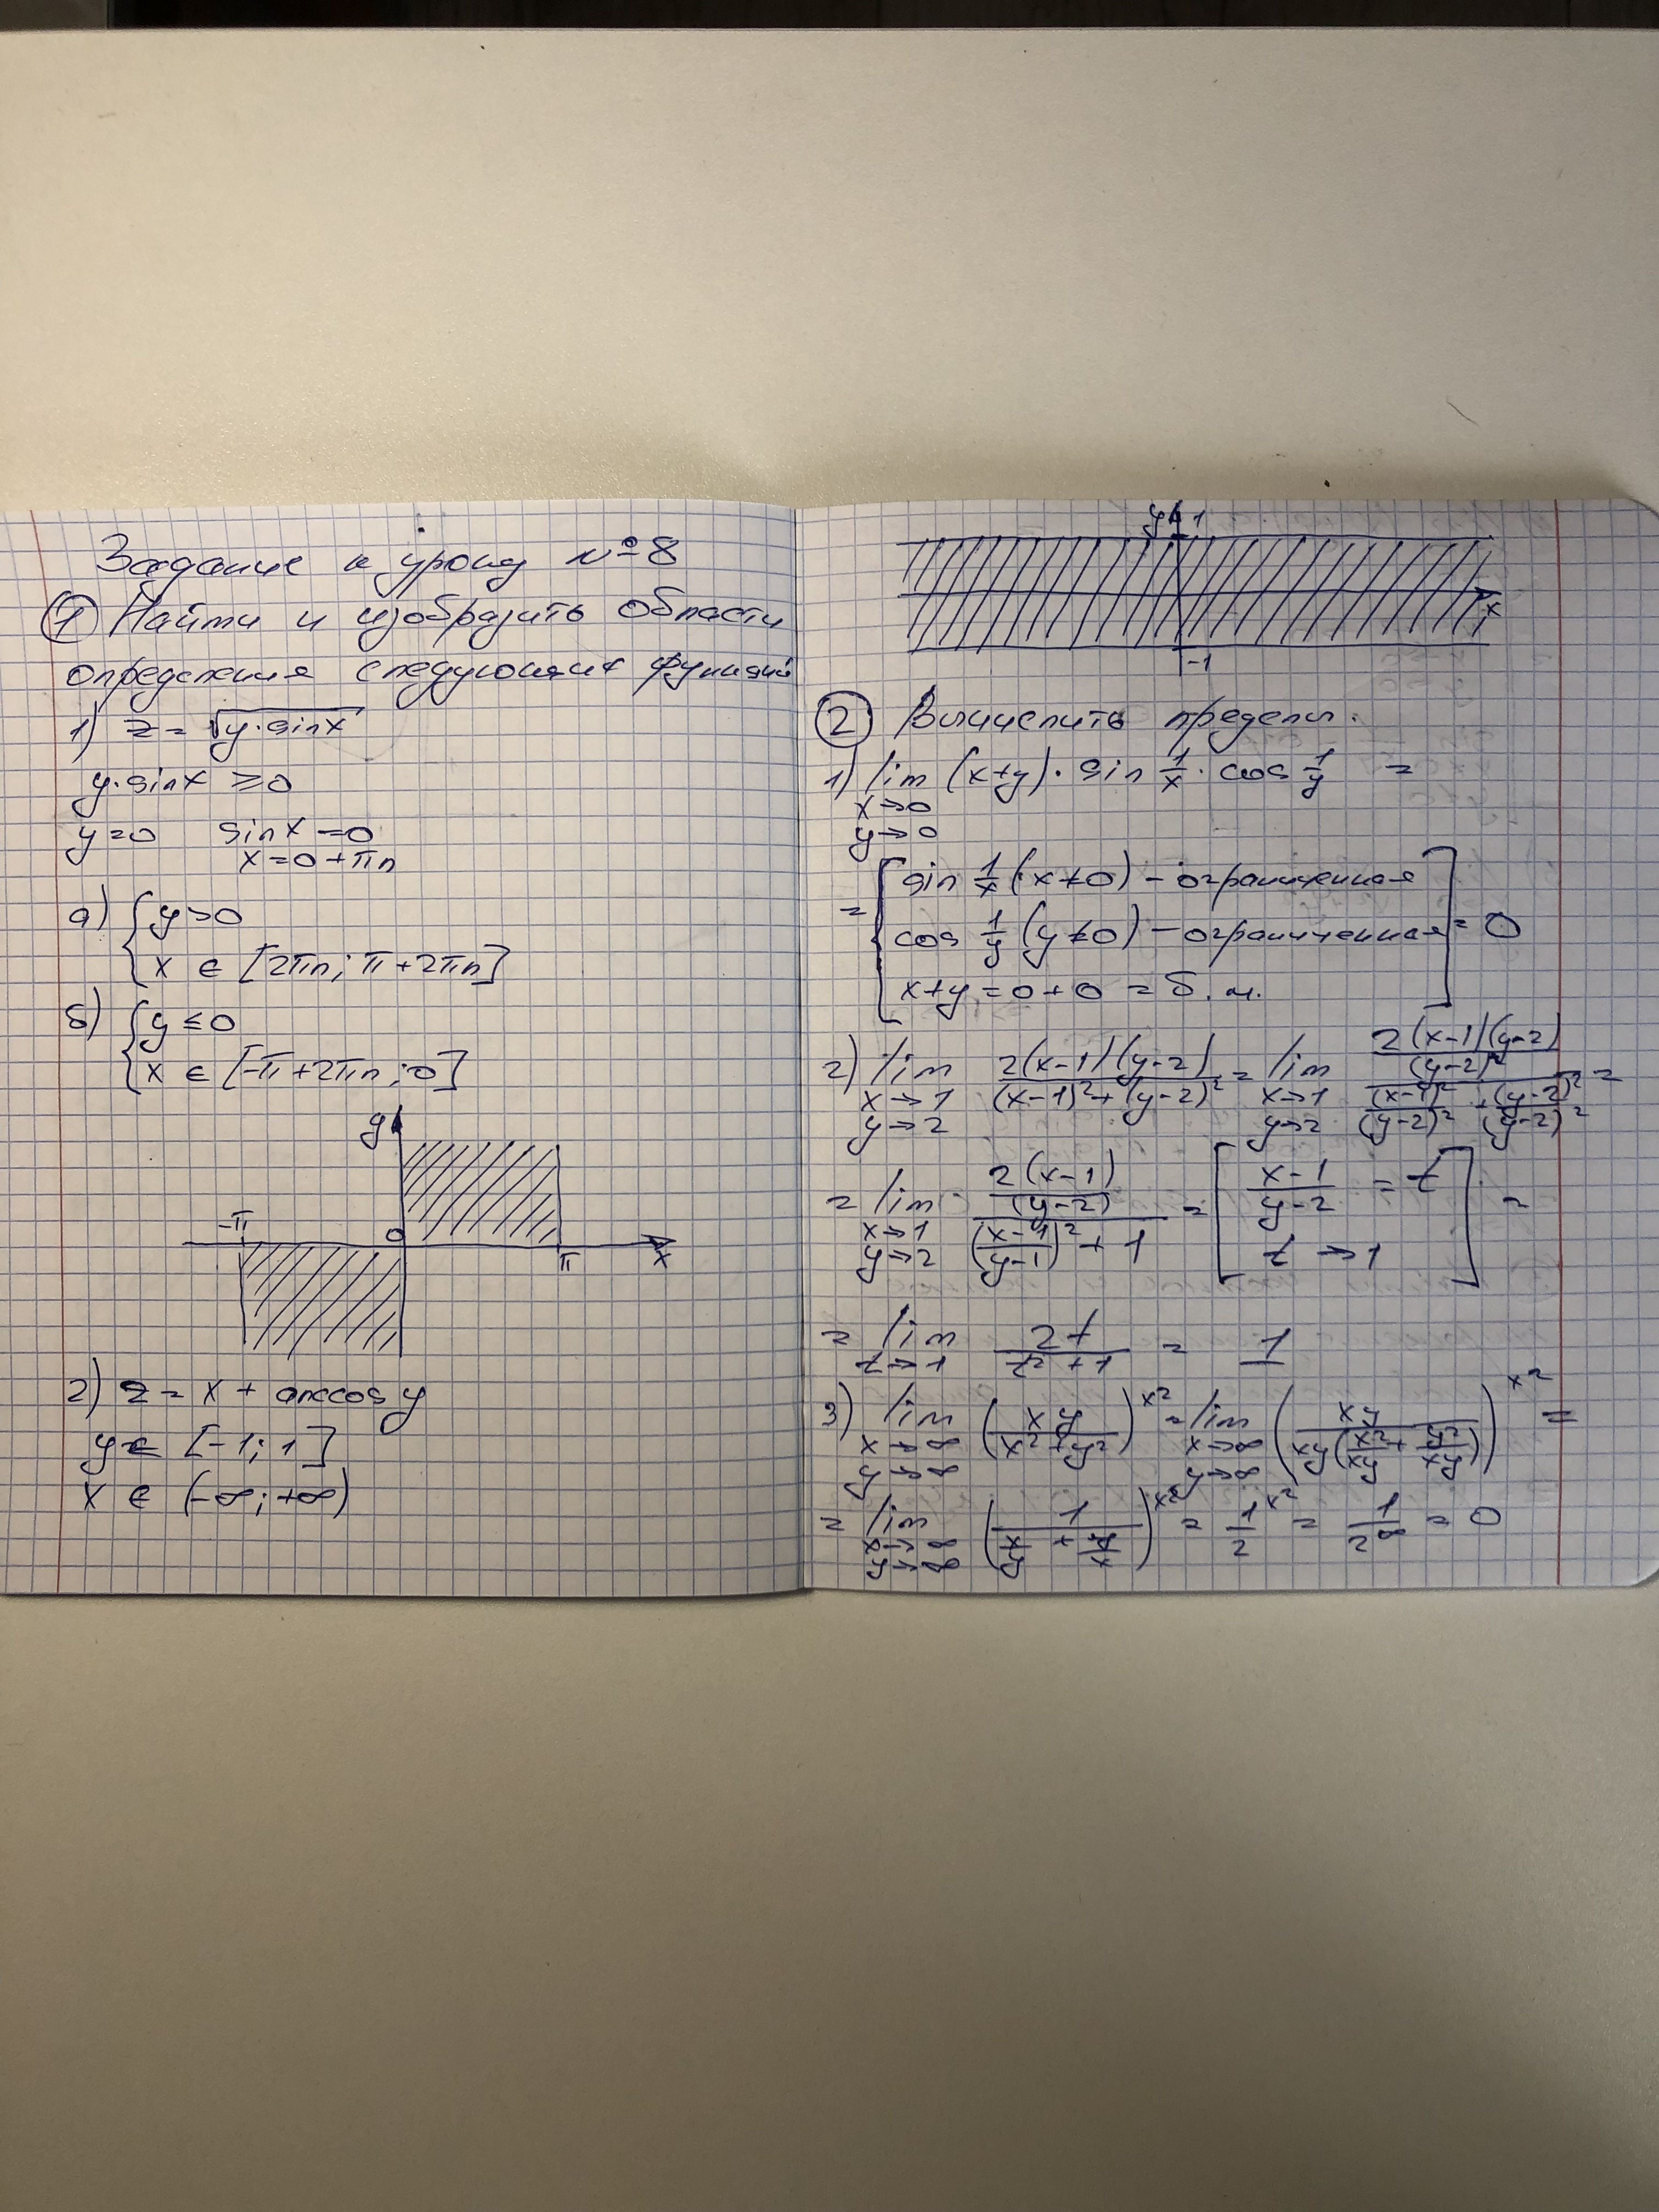 Задание к уроку №8
① Найти и изобразить области
определения следующих функций
1) z = √(y·sinx)
y·sinx ≥0
y=0 sinx=0
x=0+πn
а) { y>0
x ∈ [2πn; π+2πn]
б) { y≤0
x ∈ [-π+2πn; 0]
y
-π 0 π x
2) z = x + arccosy
y ∈ [-1; 1]
x ∈ (-∞; +∞)
y 1
x
-1
② Вычислить пределы.
1) lim (x+y)· sin 1/x · cos 1/y =
x→0
y→0
= [ sin 1/x (x≠0) – ограниченная
cos 1/y (y≠0) – ограниченная ] = 0
x+y = 0+0 = б.м.
2) lim 2(x-1)(y-2) / ((x-1)²+(y-2)²) = lim (2(x-1)(y-2)/(y-2)²) / ((x-1)²/(y-2)² + (y-2)²/(y-2)²) =
x→1 x→1
y→2 y→2
= lim (2(x-1)/(y-2)) / (((x-1)/(y-1))² + 1) = [ (x-1)/(y-2) = t ] =
x→1 t→1
y→2
= lim 2t/(t²+1) = 1
t→1
3) lim (xy/(x²+y²))^x² = lim (xy/(xy(x²/xy + y²/xy)))^x² =
x→∞ x→∞
y→∞ y→∞
= lim (1/(x/y + y/x))^x² = 1/2^x² = 1/2^∞ = 0
x→∞
y→∞